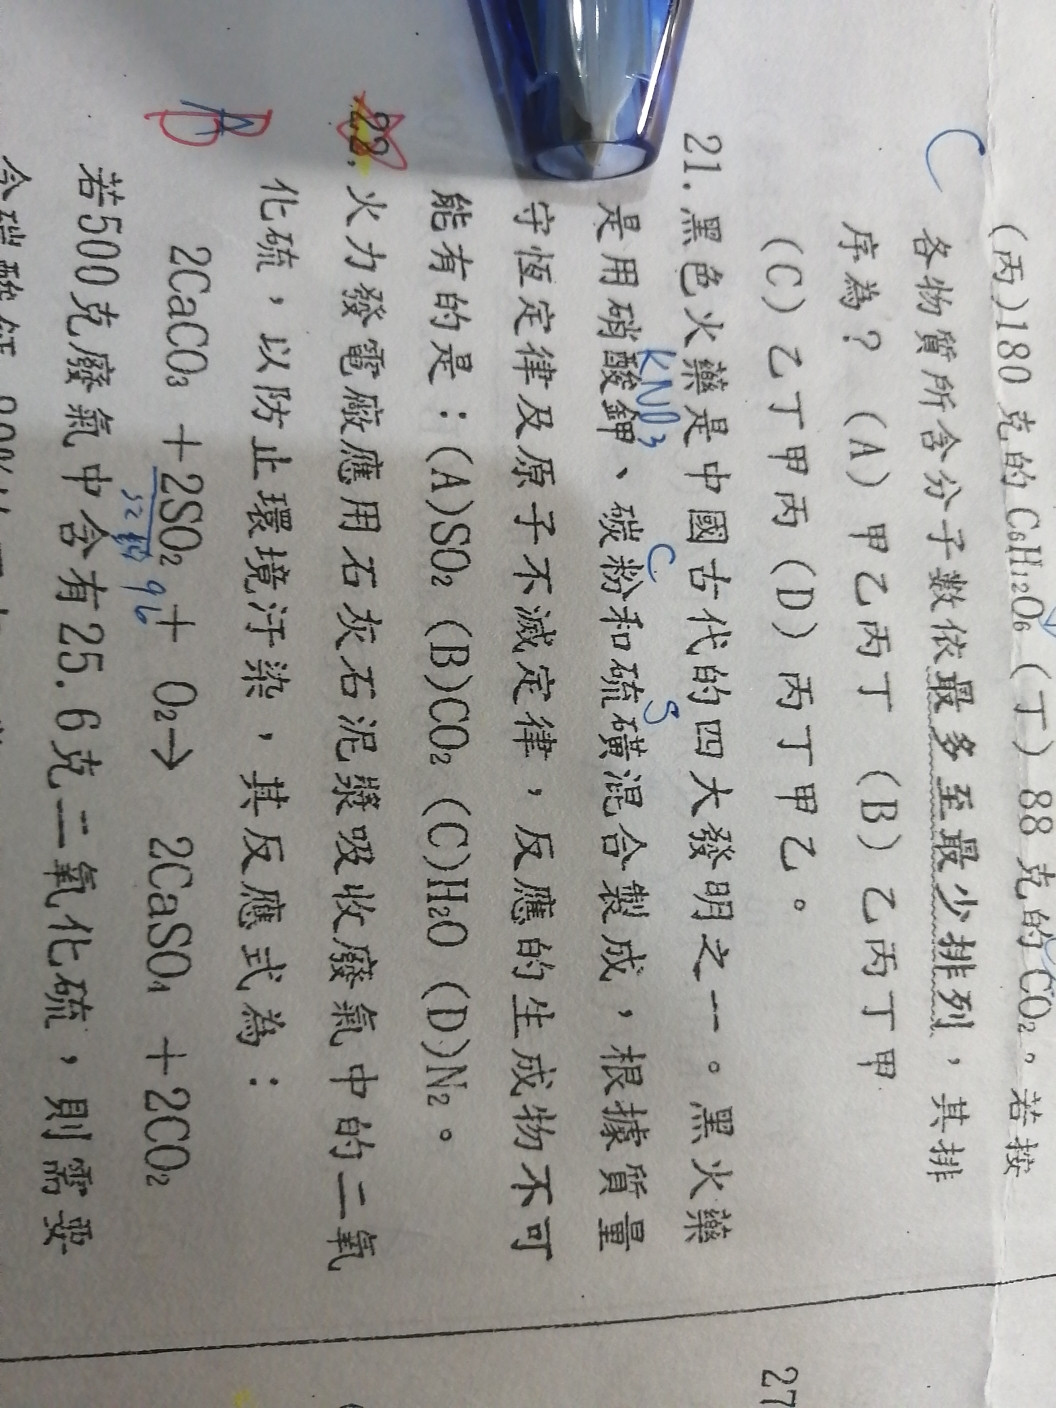 (丙)180 克的 C6H12O6 (丁) 88 克的 CO2。若按
C
各物質所含分子數依最多至最少排列，其排
序為？(A) 甲乙丙丁 (B) 乙丙丁甲
(C) 乙丁甲丙 (D) 丙丁甲乙。
21. 黑色火藥是中國古代的四大發明之一。黑火藥
KNO3 C S
是用硝酸鉀、碳粉和硫磺混合製成，根據質量
守恆定律及原子不滅定律，反應的生成物不可
能有的是：(A)SO2 (B)CO2 (C)H2O (D)N2。
22. 火力發電廠應用石灰石泥漿吸收廢氣中的二氧
化硫，以防止環境汙染，其反應式為：
2CaCO3 +2SO2 + O2→ 2CaSO4 +2CO2
32 96
若500克廢氣中含有25.6克二氧化硫，則需要
27